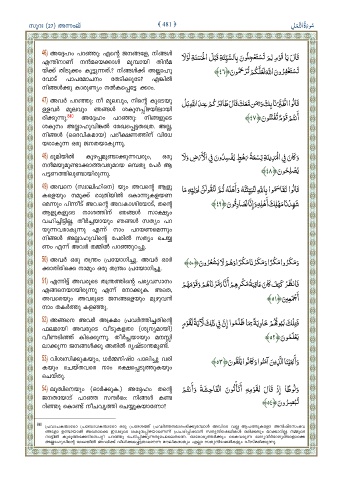 സൂറ: (27) അന്നംല്
(481)
سُورَةُ النَّمْلِ
46) അദ്ദേഹം പറഞ്ഞു: എന്റെ ജനങ്ങളേ, നിങ്ങൾ
എന്തിനാണ് നന്മയെക്കാൾ മുമ്പായി തിന്മ
യ്ക്ക് തിടുക്കം കൂട്ടുന്നത്.? നിങ്ങൾക്ക് അല്ലാഹു
വോട് പാപമോചനം തേടിക്കൂടേ? എങ്കിൽ
നിങ്ങൾക്കു കാരുണ്യം നൽകപ്പെട്ടേ ക്കാം.
قَالَ يَا قَوْمِ لِمَ تَسْتَعْجِلُونَ بِالسَّيِّئَةِ قَبْلَ الْحَسَنَةِ لَوْلَا
تَسْتَغْفِرُونَ اللَّهَ لَعَلَّكُمْ تُرْحَمُونَ ﴿٤٦﴾
47) അവർ പറഞ്ഞു: നീ മൂലവും, നിന്റെ കൂടെയു
ള്ളവർ മൂലവും ഞങ്ങൾ ശകുനപ്പിഴയിലായി
രിക്കുന്നു. അദ്ദേഹം പറഞ്ഞു: നിങ്ങളുടെ
ശകുനം അല്ലാഹുവിങ്കൽ രേഖപ്പെട്ടതത്രെ. അല്ല,
നിങ്ങൾ (ദൈവികമായ) പരീക്ഷണത്തിന് വിധേ
യരാകുന്ന ഒരു ജനതയാകുന്നു.
قَالُوا اطَّيَّرْنَا بِكَ وَبِمَن مَّعَكَ قَالَ طَائِرُكُمْ عِندَ اللَّهِ بَلْ
أَنتُمْ قَوْمٌ تُفْتَنُونَ ﴿٤٧﴾
48) ഭൂമിയിൽ കുഴപ്പമുണ്ടാക്കുന്നവരും, ഒരു
നന്മയുമുണ്ടാക്കാത്തവരുമായ ഒമ്പതു പേർ ആ
പട്ടണത്തിലുണ്ടായിരുന്നു.
وَكَانَ فِي الْمَدِينَةِ تِسْعَةُ رَهْطٍ يُفْسِدُونَ فِي الْأَرْضِ وَلَا
يُصْلِحُونَ ﴿٤٨﴾
49) അവനെ (സ്വാലിഹിനെ) യും അവന്റെ ആളു
കളെയും നമുക്ക് രാത്രിയിൽ കൊന്നുകളയണ
മെന്നും പിന്നീട് അവന്റെ അവകാശിയോട്, തന്റെ
ആളുകളുടെ നാശത്തിന് ഞങ്ങൾ സാക്ഷ്യം
വഹിച്ചിട്ടില്ല, തീർച്ചയായും ഞങ്ങൾ സത്യം പറ
യുന്നവരാകുന്നു എന്ന് നാം പറയണമെന്നും
നിങ്ങൾ അല്ലാഹുവിന്റെ പേരിൽ സത്യം ചെയ്യ
ണം എന്ന് അവർ തമ്മിൽ പറഞ്ഞുറച്ചു.
قَالُوا تَقَاسَمُوا بِاللَّهِ لَنُبَيِّتَنَّهُ وَأَهْلَهُ ثُمَّ لَنَقُولَنَّ لِوَلِيِّهِ مَا
شَهِدْنَا مَهْلِكَ أَهْلِهِ وَإِنَّا لَصَادِقُونَ ﴿٤٩﴾
50) അവർ ഒരു തന്ത്രം പ്രയോഗിച്ചു. അവർ ഓർ
ക്കാതിരിക്കെ നാമും ഒരു തന്ത്രം പ്രയോഗിച്ചു.
وَمَكَرُوا مَكْرًا وَمَكَرْنَا مَكْرًا وَهُمْ لَا يَشْعُرُونَ ﴿٥٠﴾
51) എന്നിട്ട് അവരുടെ തന്ത്രത്തിന്റെ പര്യവസാനം
എങ്ങനെയായിരുന്നു എന്ന് നോക്കുക. അതെ,
അവരെയും അവരുടെ ജനങ്ങളെയും മുഴുവൻ
നാം തകർത്തു കളഞ്ഞു.
فَانظُرْ كَيْفَ كَانَ عَاقِبَةُ مَكْرِهِمْ أَنَّا دَمَّرْنَاهُمْ وَقَوْمَهُمْ
أَجْمَعِينَ ﴿٥١﴾
52) അങ്ങനെ അവർ അക്രമം പ്രവർത്തിച്ചതിന്റെ
ഫലമായി അവരുടെ വീടുകളതാ (ശൂന്യമായി)
വീണടിഞ്ഞ് കിടക്കുന്നു. തീർച്ചയായും മനസ്സി
ലാക്കുന്ന ജനങ്ങൾക്കു അതിൽ ദൃഷ്ടാന്തമുണ്ട്.
فَتِلْكَ بُيُوتُهُمْ خَاوِيَةً بِمَا ظَلَمُوا إِنَّ فِي ذَٰلِكَ لَآيَةً لِّقَوْمٍ
يَعْلَمُونَ ﴿٥٢﴾
53) വിശ്വസിക്കുകയും, ധർമ്മനിഷ്ഠ പാലിച്ചു വരി
കയും ചെയ്തവരെ നാം രക്ഷപ്പെടുത്തുകയും
ചെയ്തു.
وَأَنجَيْنَا الَّذِينَ آمَنُوا وَكَانُوا يَتَّقُونَ ﴿٥٣﴾
54) ലൂത്വിനെയും (ഓർക്കുക.) അദ്ദേഹം തന്റെ
ജനതയോട് പറഞ്ഞ സന്ദർഭം: നിങ്ങൾ കണ്ട
റിഞ്ഞു കൊണ്ട് നീചവൃത്തി ചെയ്യുകയാണോ?
وَلُوطًا إِذْ قَالَ لِقَوْمِهِ أَتَأْتُونَ الْفَاحِشَةَ وَأَنتُمْ
تُبْصِرُونَ ﴿٥٤﴾